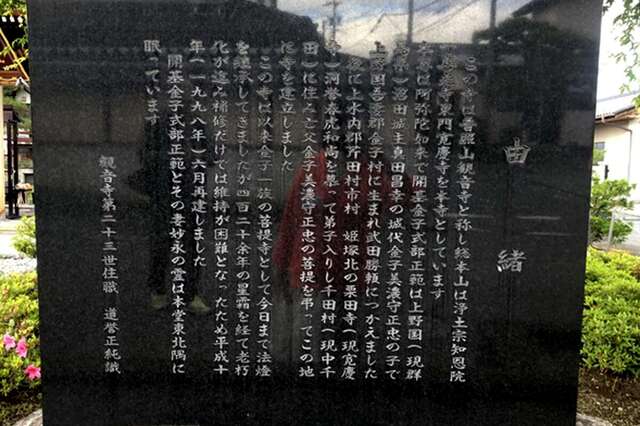 由緒
この寺は普照山観音寺と称し総本山は浄土宗知恩院
寛慶寺を本寺としています
本尊は阿弥陀如来で開基金子式部正範は上野国(現群
馬県)沼田城主真田昌幸の城代金子美濃守正忠の子で
上野国吾妻郡金子村に生まれ武田勝頼につかえました
後に上水内郡芹田村市村 姫塚北の栗田寺(現寛慶
寺)洞誉春虎和尚を慕って弟子入りし千田村(現中千
田)に住み亡父金子美濃守正忠の菩提を弔ってこの地
に寺を建立しました
この寺は以来金子一族の菩提寺として今日まで法燈
を継承してきましたが四百二十余年の星霜を経て老朽
化が進み補修だけでは維持が困難となったため平成十
年(一九九八年)六月再建しました
開基金子式部正範とその妻妙永の霊は本堂東北隅に
眠っています
観音寺第二十三世住職 道誉正純識